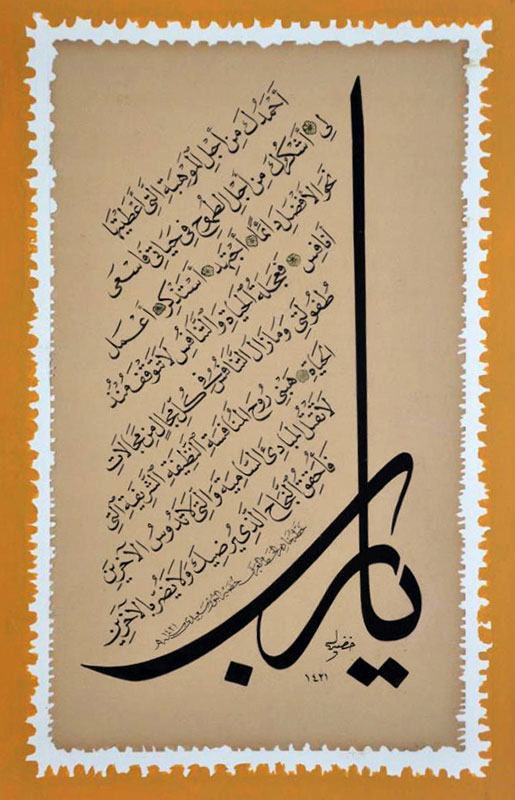 يا رب
أحمدك من أجل الموهبة التي أعطيتها
لي أشكرك من أجل الطموح في حياتي فأسعى
نحو الأفضل دائما أجتهد أستذكر أعمل
أنافس فعجلة الحياة والتنافس لا تتوقف منذ
طفولتي وما زال التنافس في كل مجال من مجالات
الحياة هبني روح المنافسة النظيفة الشريفة التي
لا تقتل المبادئ السامية والتي لا تدوس الآخرين
فأحقق النجاح الذي يرضيك ولا يضر بالآخرين
خضير
١٤٢١